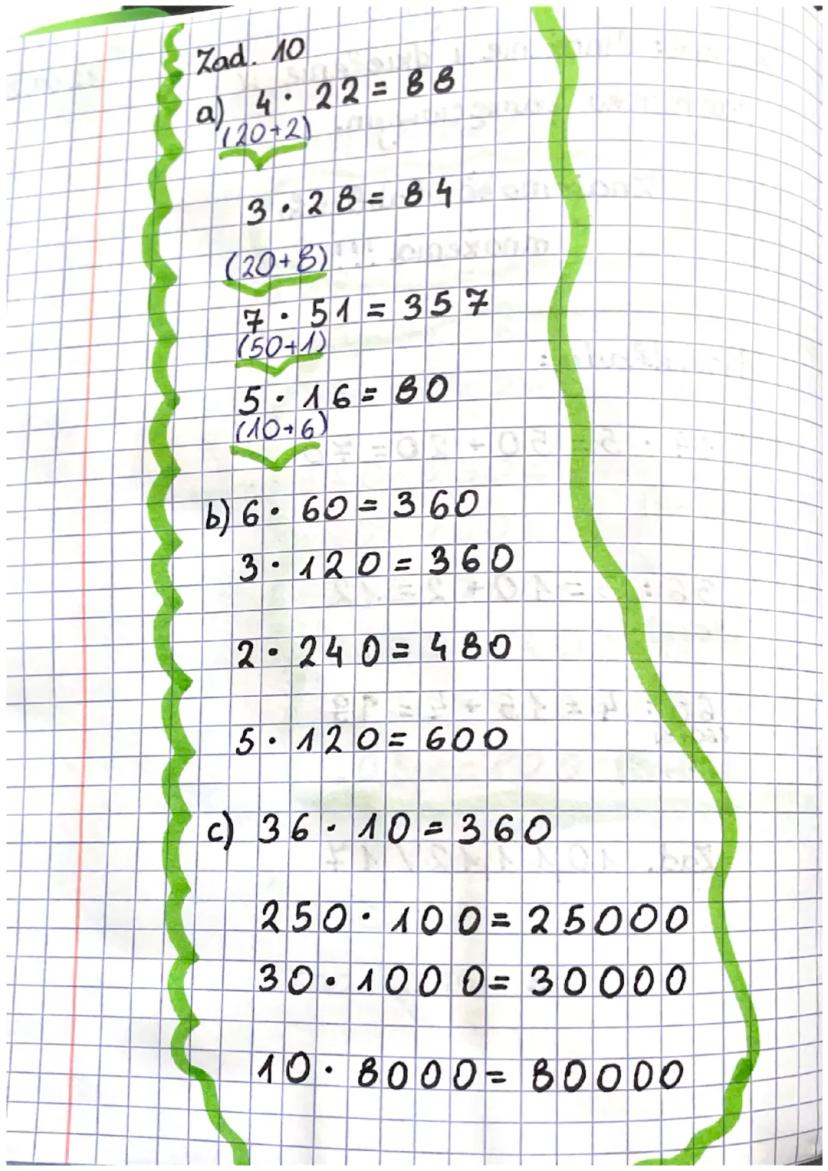 Zad. 10
a) 4 · 22 = 88
(20+2)
3 · 28 = 84
(20+8)
7 · 51 = 357
(50+1)
5 · 16 = 80
(10+6)
b) 6 · 60 = 360
3 · 120 = 360
2 · 240 = 480
5 · 120 = 600
c) 36 · 10 = 360
250 · 100 = 25000
30 · 1000 = 30000
10 · 8000 = 80000